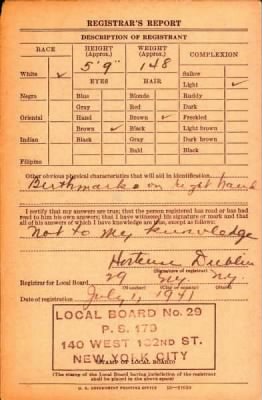 REGISTRAR'S REPORT
DESCRIPTION OF REGISTRANT
RACE HEIGHT (Approx.) WEIGHT (Approx.) COMPLEXION
5' 9" 148 Sallow
White ✓ EYES HAIR Light ✓
Negro Blue Blonde Ruddy
Gray Red Dark
Oriental Hazel Brown ✓ Freckled
Brown ✓ Black Light brown
Indian Black Gray Dark brown
Bald Black
Filipino
Other obvious physical characteristics that will aid in identification
Birthmarks on right hand
I certify that my answers are true; that the person registered has read or has had
read to him his own answers; that I have witnessed his signature or mark and that
all of his answers of which I have knowledge are true, except as follows:
Not to my knowledge
Hortense Dublin
(Signature of registrar)
Registrar for Local Board 29 NY. NY
(Number) (City or county) (State)
Date of registration July 1, 1941
LOCAL BOARD No. 29
P. S. 179
140 WEST 102ND ST.
NEW YORK CITY
(STAMP OF LOCAL BOARD)
(The stamp of the Local Board having jurisdiction of the registrant
shall be placed in the above space)
U. S. GOVERNMENT PRINTING OFFICE